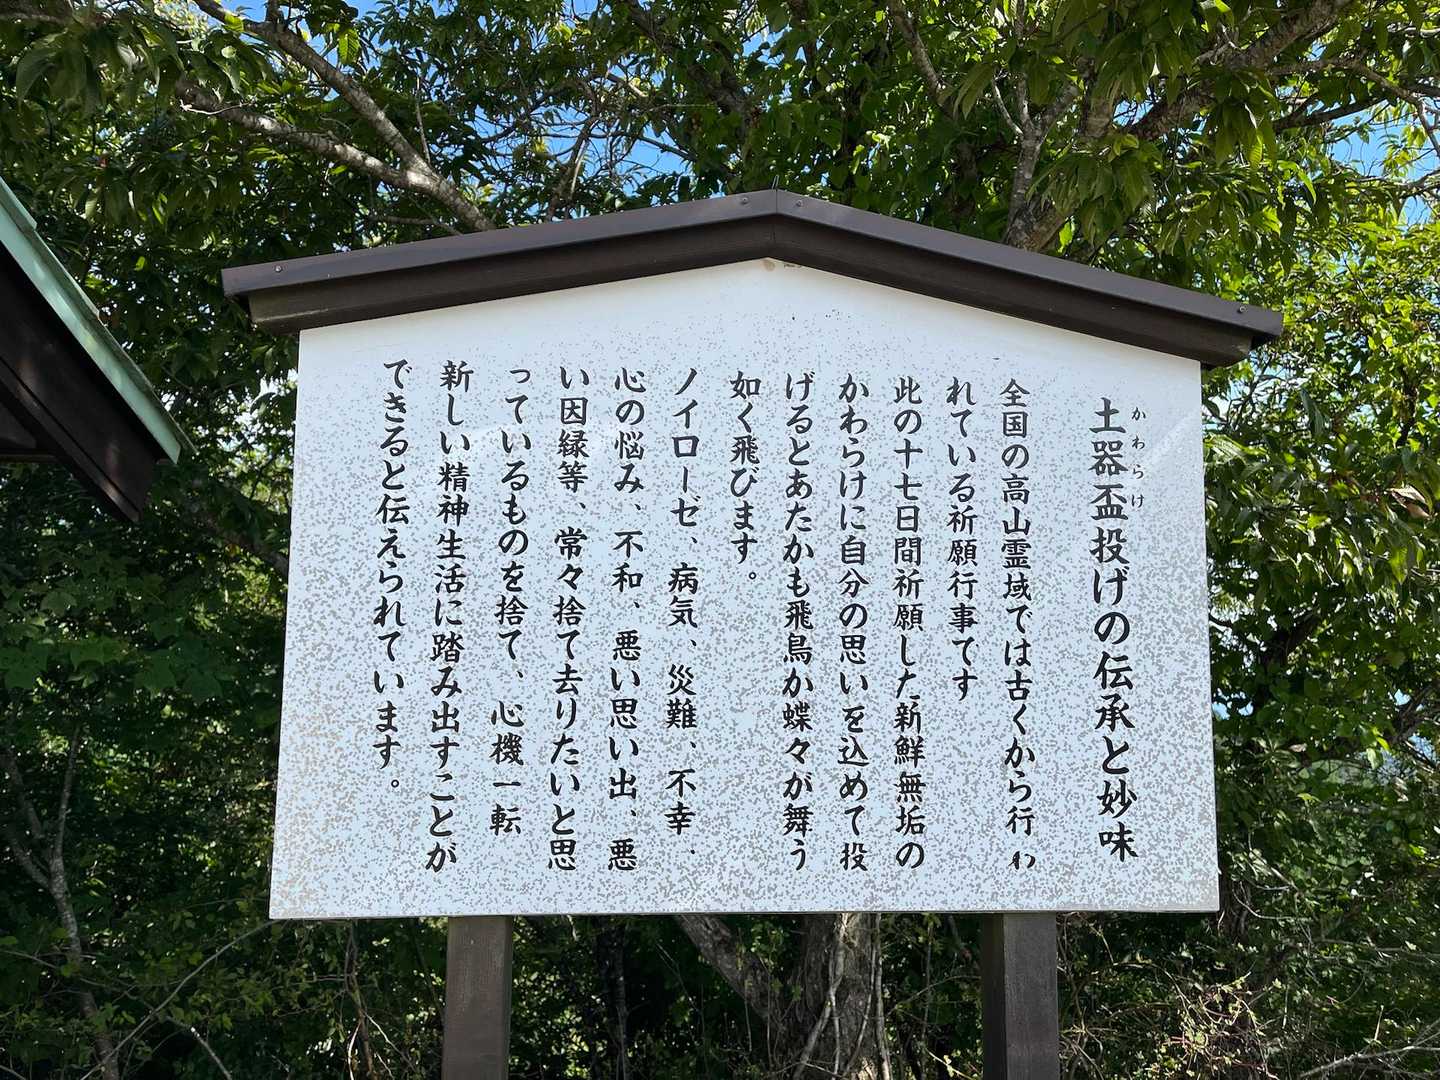 土器盃投げの伝承と妙味
かわらけ
全国の高山霊域では古くから行わ
れている祈願行事てす
此の十七日間祈願した新鮮無垢の
かわらけに自分の思いを込めて投
げるとあたかも飛鳥か蝶々が舞う
如く飛びます。
ノイローゼ、病気、災難、不幸、
心の悩み、不和、悪い思い出、悪
い因縁等、常々捨て去りたいと思
っているものを捨て、心機一転
新しい精神生活に踏み出すことが
できると伝えられています。